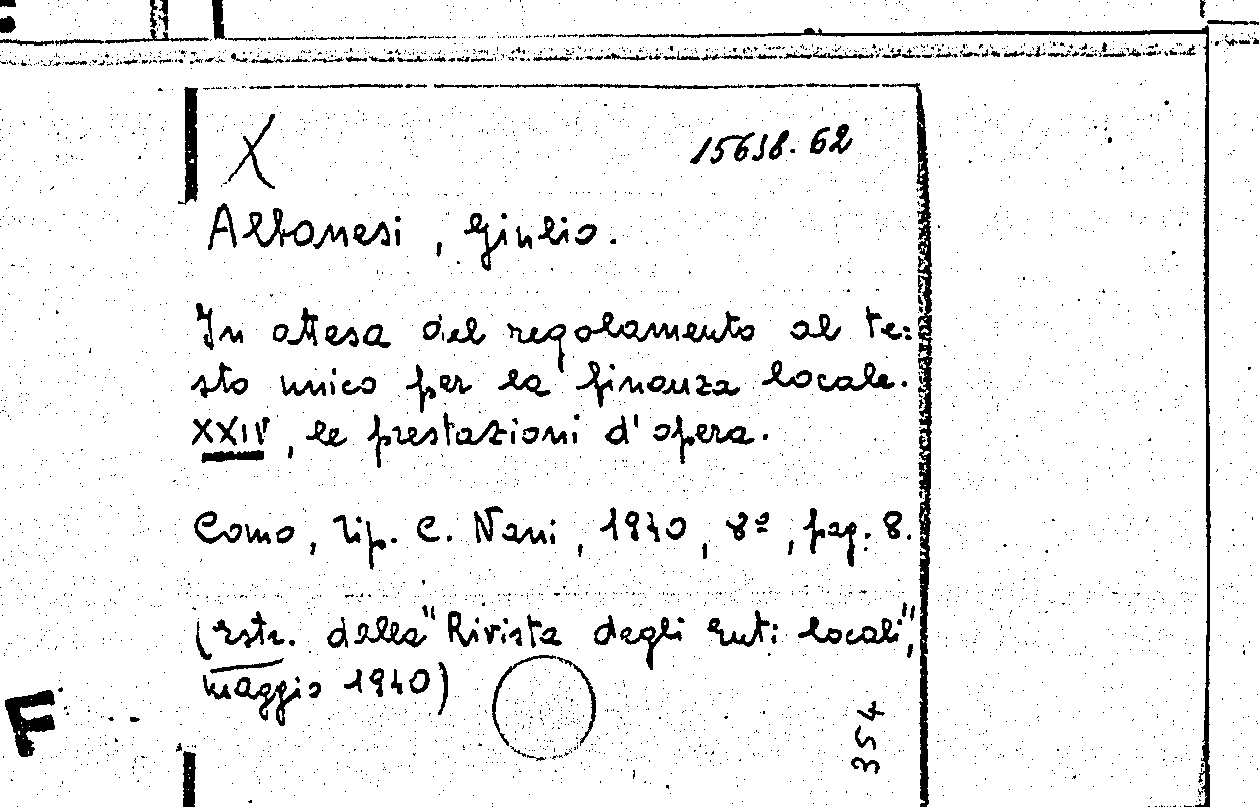 X
15638.62
Albanesi, Giulio.
In attesa del regolamento al te:
sto unico per la finanza locale.
XXIV, le prestazioni d'opera.
Como, Tip. C. Nani, 1940, 8º, pag. 8.
(estr. della "Rivista degli Enti locali",
maggio 1940)
354
F